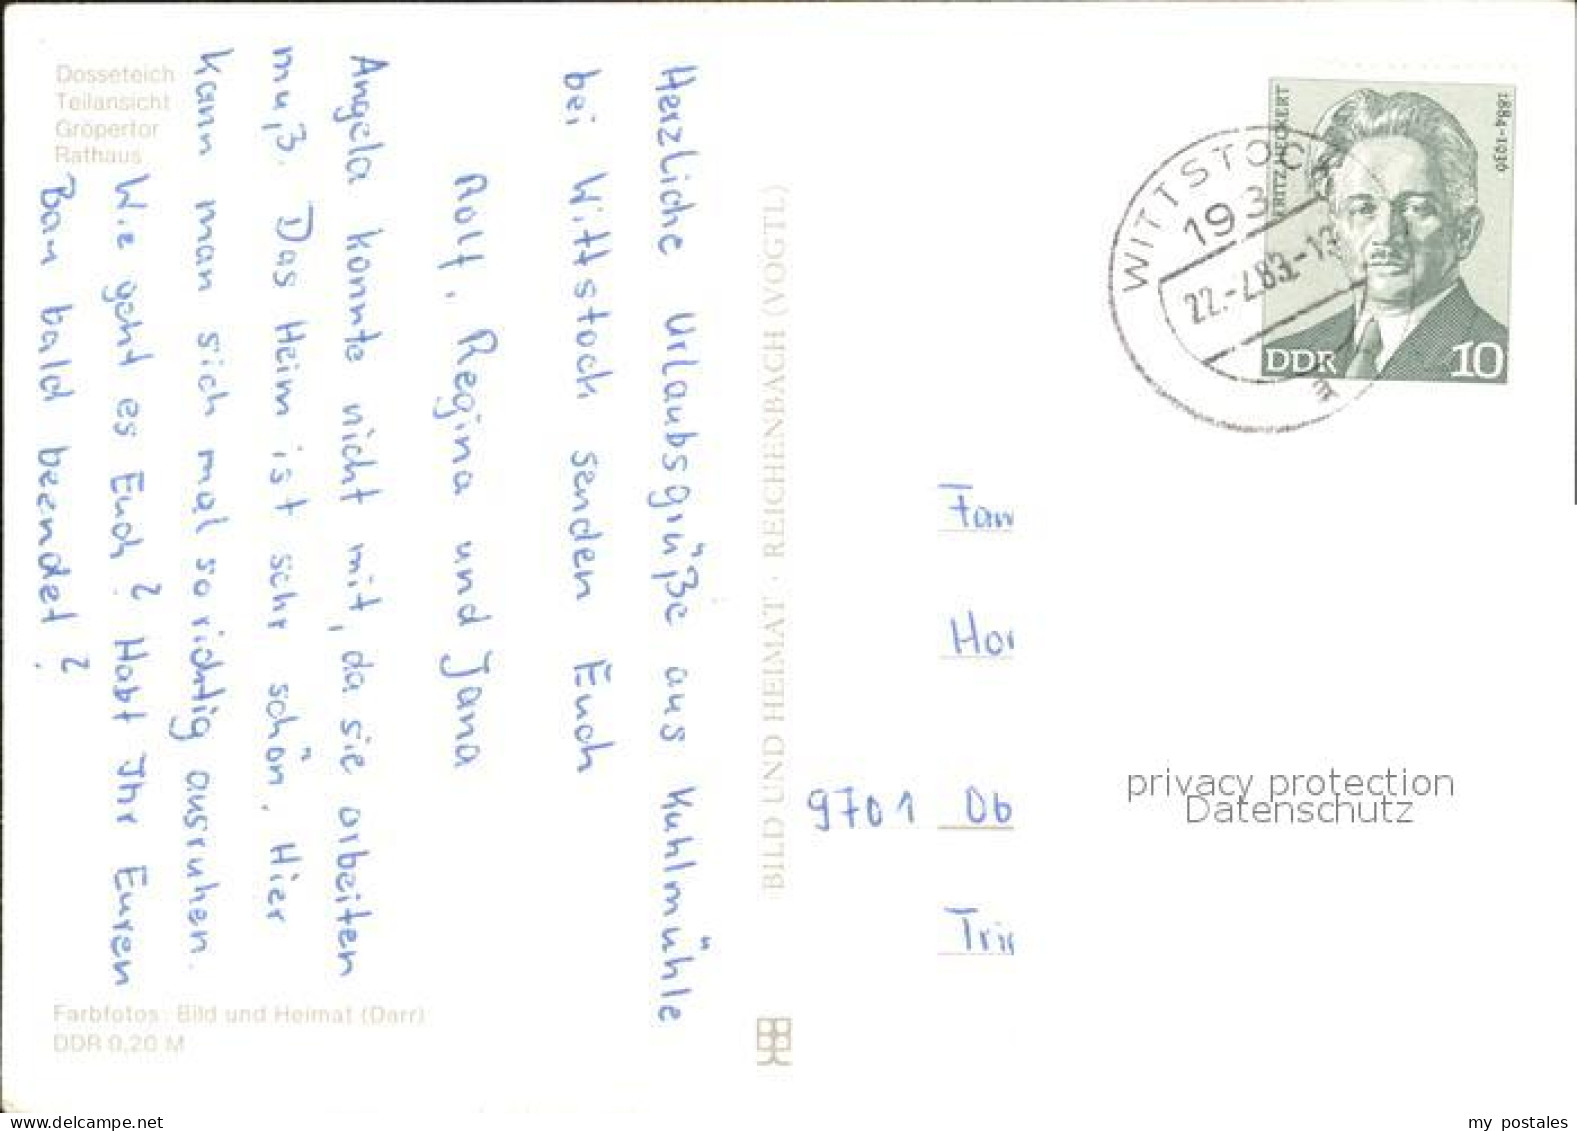 Dosseteich
Teilansicht
Gröpertor
Rathaus
Herzliche Urlaubsgrüße aus Kuhlmühle
bei Wittstock senden Euch
Rolf, Regina und Jana
Angela konnte nicht mit, da sie arbeiten
muß. Das Heim ist sehr schön. Hier
kann man sich mal so richtig ausruhen.
Wie geht es Euch? Habt Ihr Euren
Bau bald beendet?
Farbfotos: Bild und Heimat (Darr)
DDR 0,20 M
BILD UND HEIMAT · REICHENBACH (VOGTL)
FRITZ HECKERT
1884-1936
DDR
10
WITTSTOC
193
22.-
83.-
Fam
Hor
9701 Ob
Tri
privacy protection
Datenschutz
www.delcampe.net
my postales